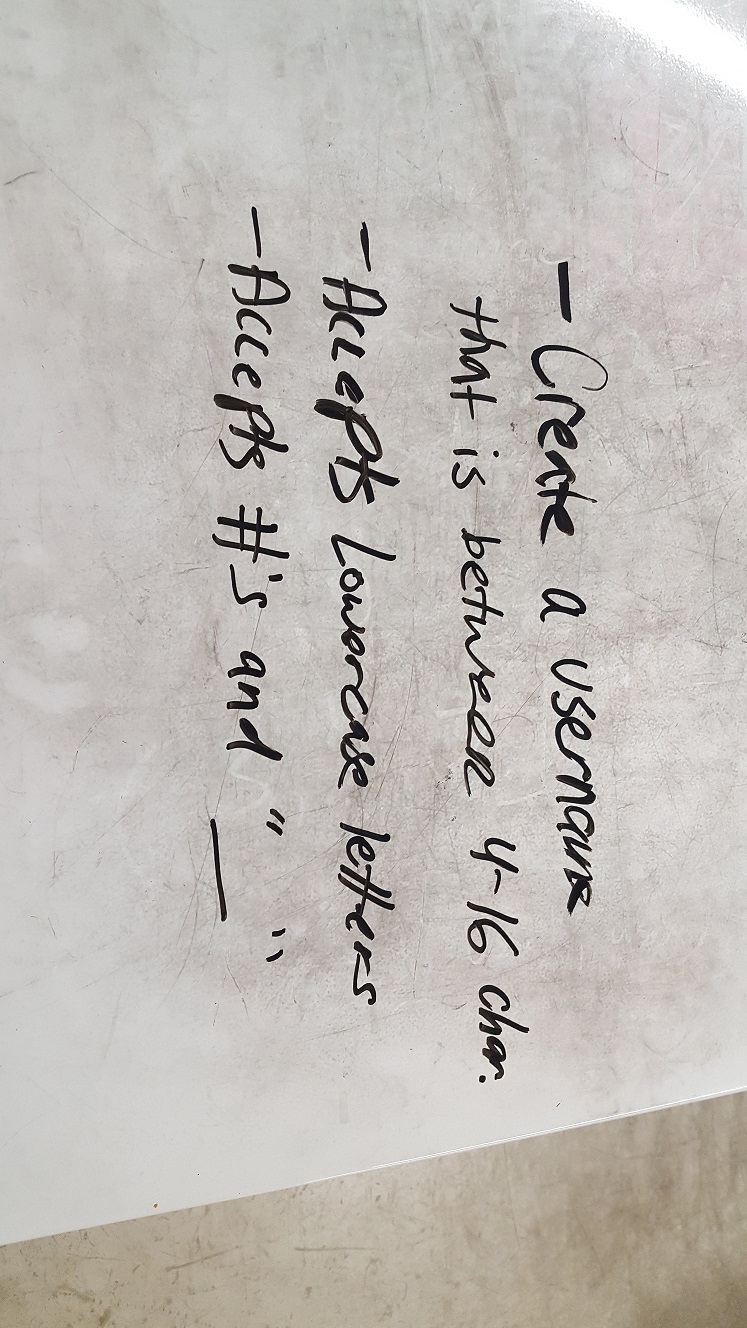 - Create a username
that is between 4-16 char.
- Accepts Lowercase letters
- Accepts #'s and "_"